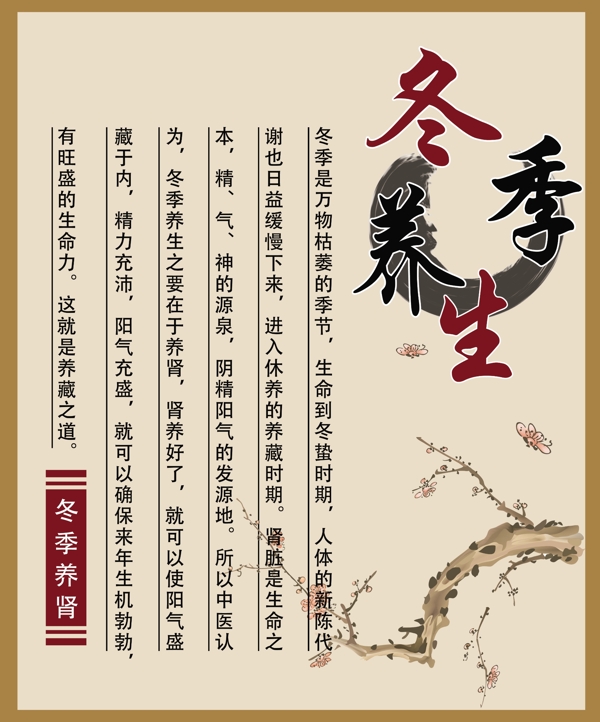 冬季养生
冬季是万物枯萎的季节，生命到冬蛰时期，人体的新陈代
谢也日益缓慢下来，进入休养的养藏时期。肾脏是生命之
本，精、气、神的源泉，阴精阳气的发源地。所以中医认
为，冬季养生之要在于养肾，肾养好了，就可以使阳气盛
藏于内，精力充沛，阳气充盛，就可以确保来年生机勃勃，
有旺盛的生命力。这就是养藏之道。
冬季养肾